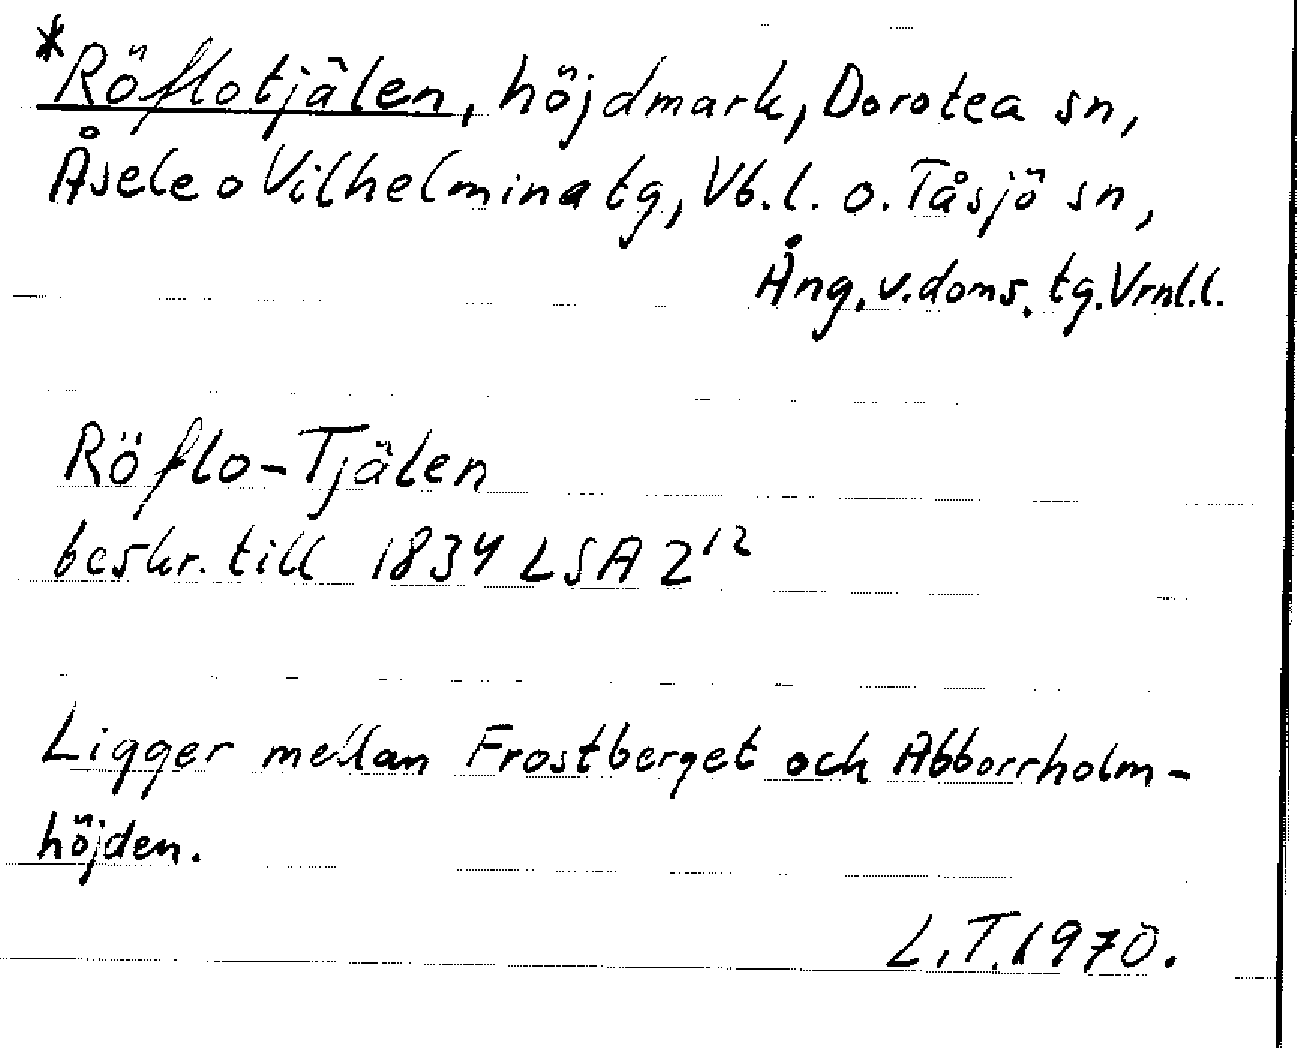 *Röflotjälen, höjdmark, Dorotea sn,
Åsele o Vilhelmina tg, Vb.l. o. Tåsjö sn,
Ång. v. doms. tg. Vrnl.l.
Röflo-Tjälen
beskr. till 1834 LSA Z¹²
Ligger mellan Frostberget och Abborrholm-
höjden.
L.T. 1970.